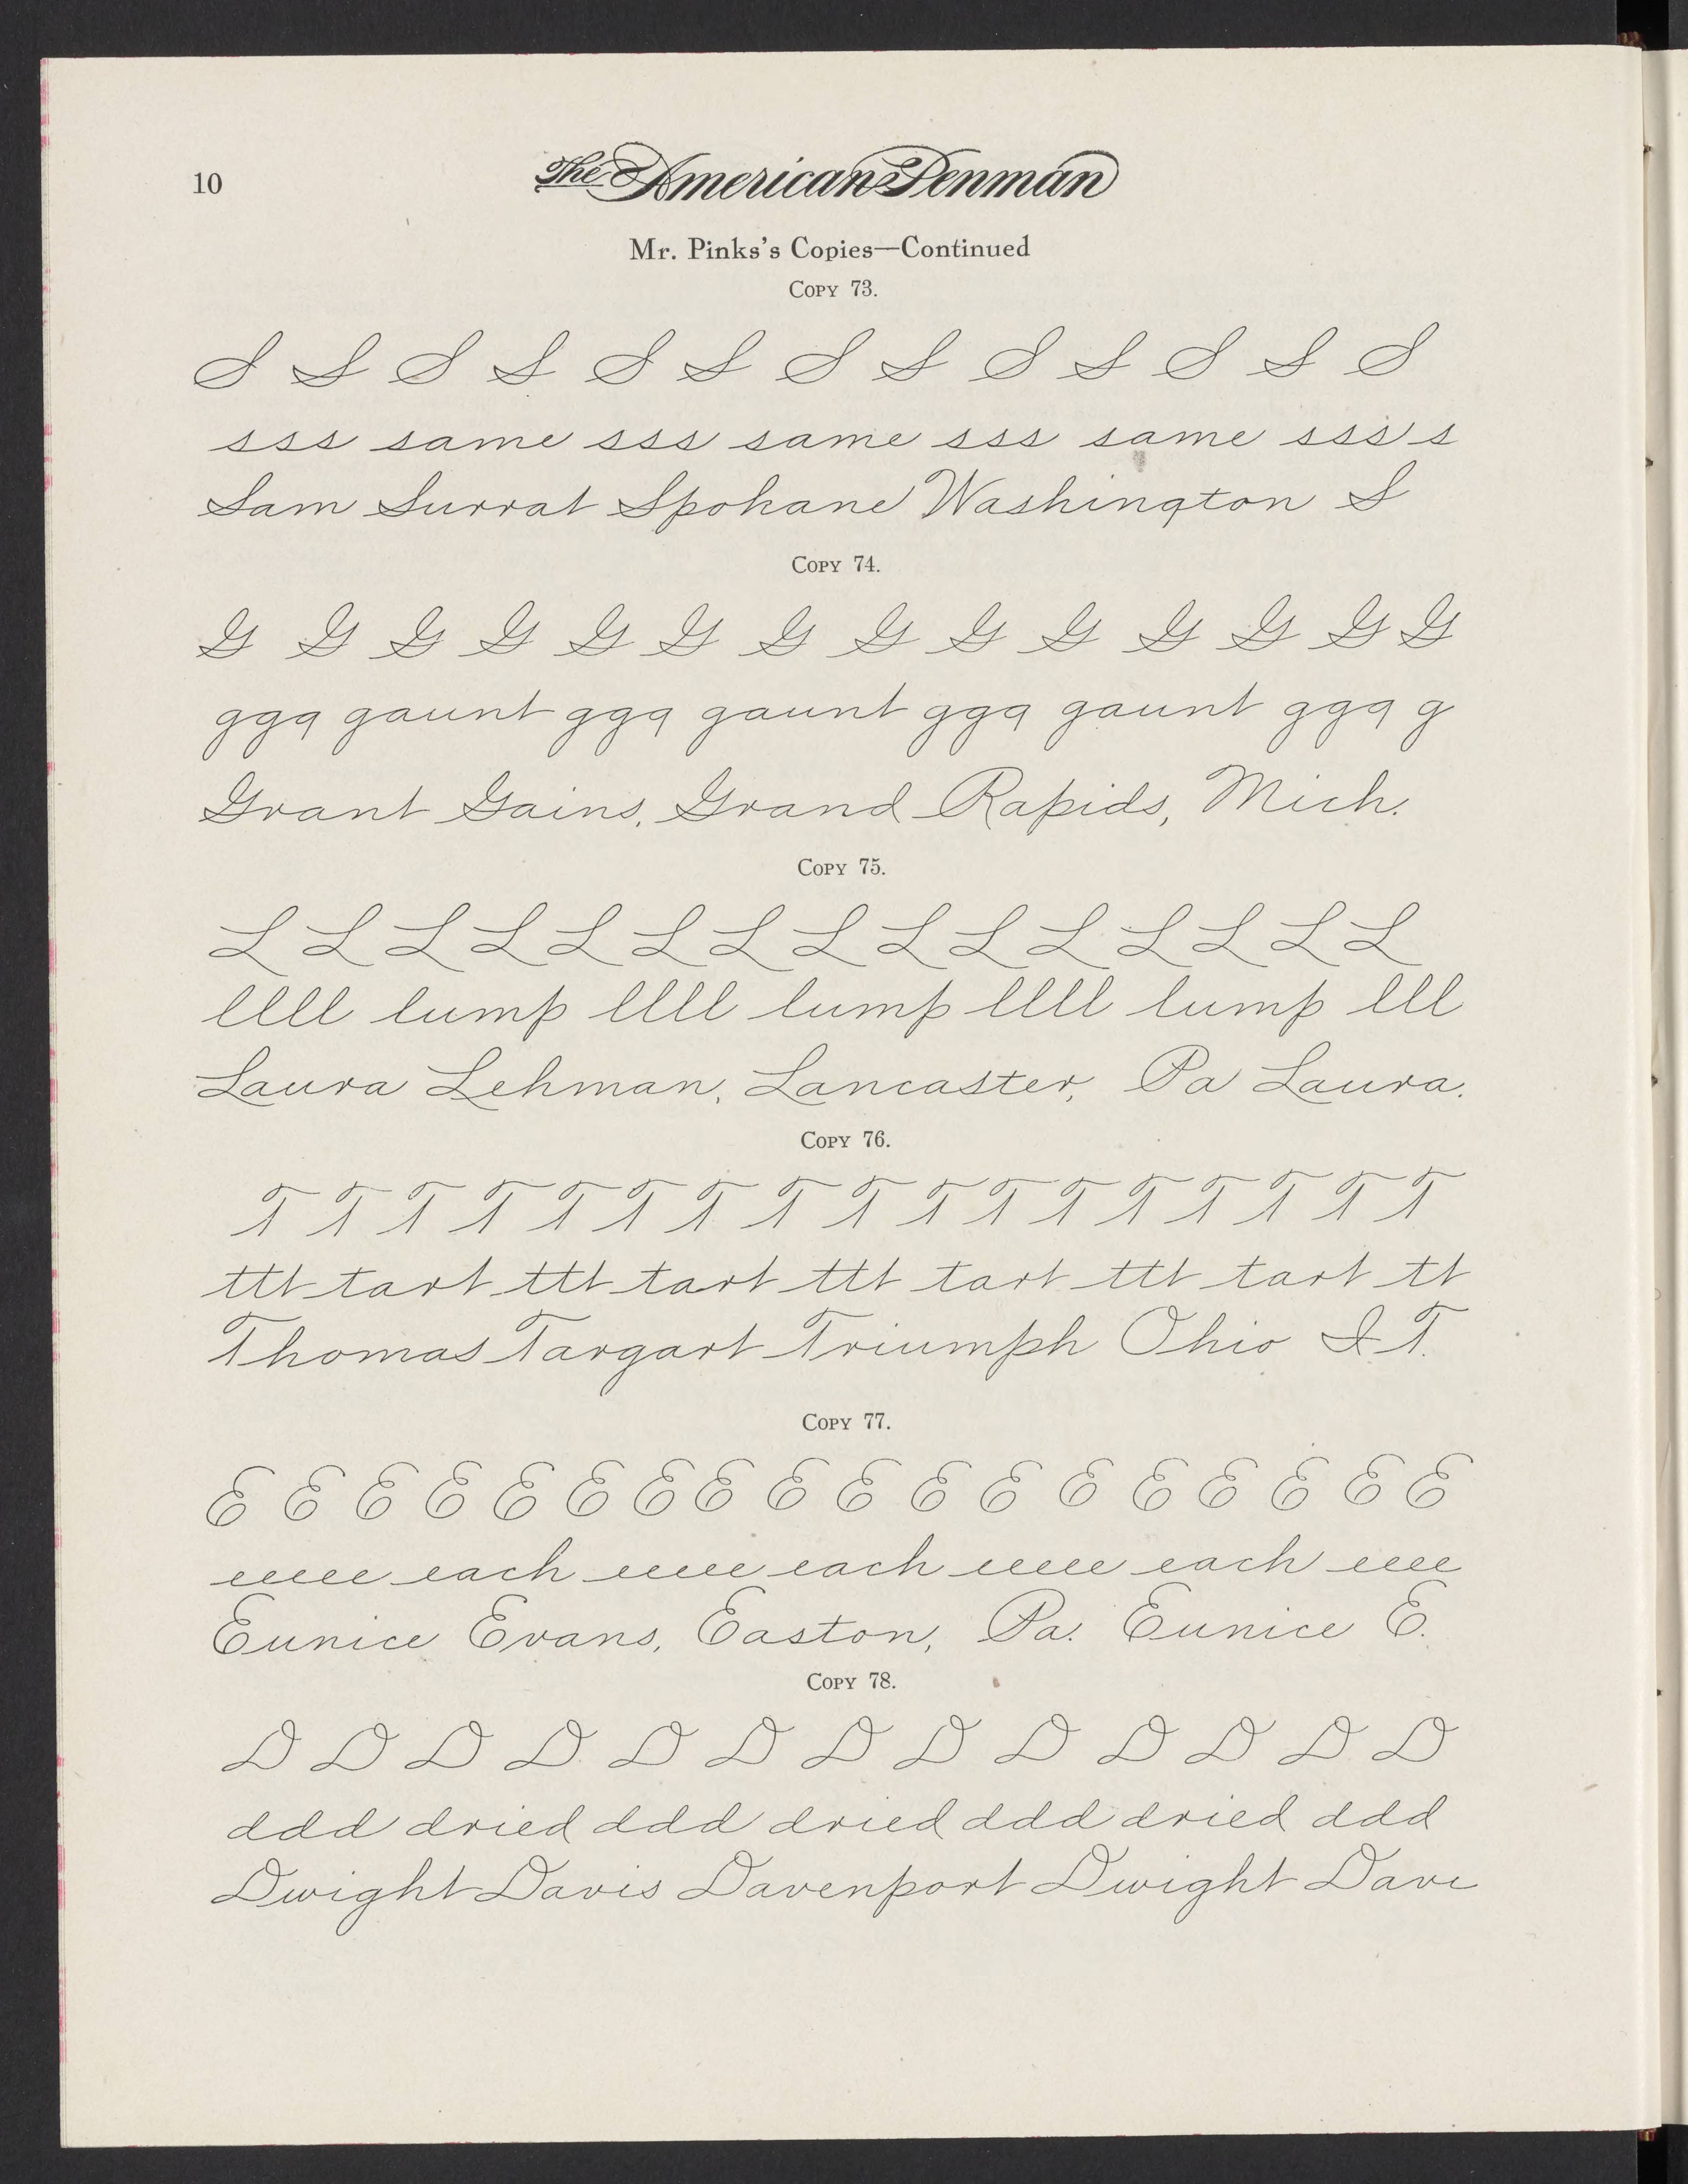 10
The American Penman
Mr. Pinks's Copies—Continued
Copy 73.
S S S S S S S S S S S S S
sss same sss same sss same sss s
Sam Surrat Spokane Washington S
Copy 74.
G G G G G G G G G G G G G G
ggg gaunt ggg gaunt ggg gaunt ggg g
Grant Gains, Grand Rapids, Mich.
Copy 75.
L L L L L L L L L L L L L L L
llll lump llll lump llll lump lll
Laura Lehman, Lancaster, Pa Laura.
Copy 76.
T T T T T T T T T T T T T T T T T
ttt tart ttt tart ttt tart ttt tart tt
Thomas Targart Triumph Ohio I T.
Copy 77.
E E E E E E E E E E E E E E E E E E
eeeee each eeeee each eeeee each eeee
Eunice Evans, Easton, Pa. Eunice E.
Copy 78.
D D D D D D D D D D D D D
ddd dried ddd dried ddd dried ddd
Dwight Davis Davenport Dwight Davi